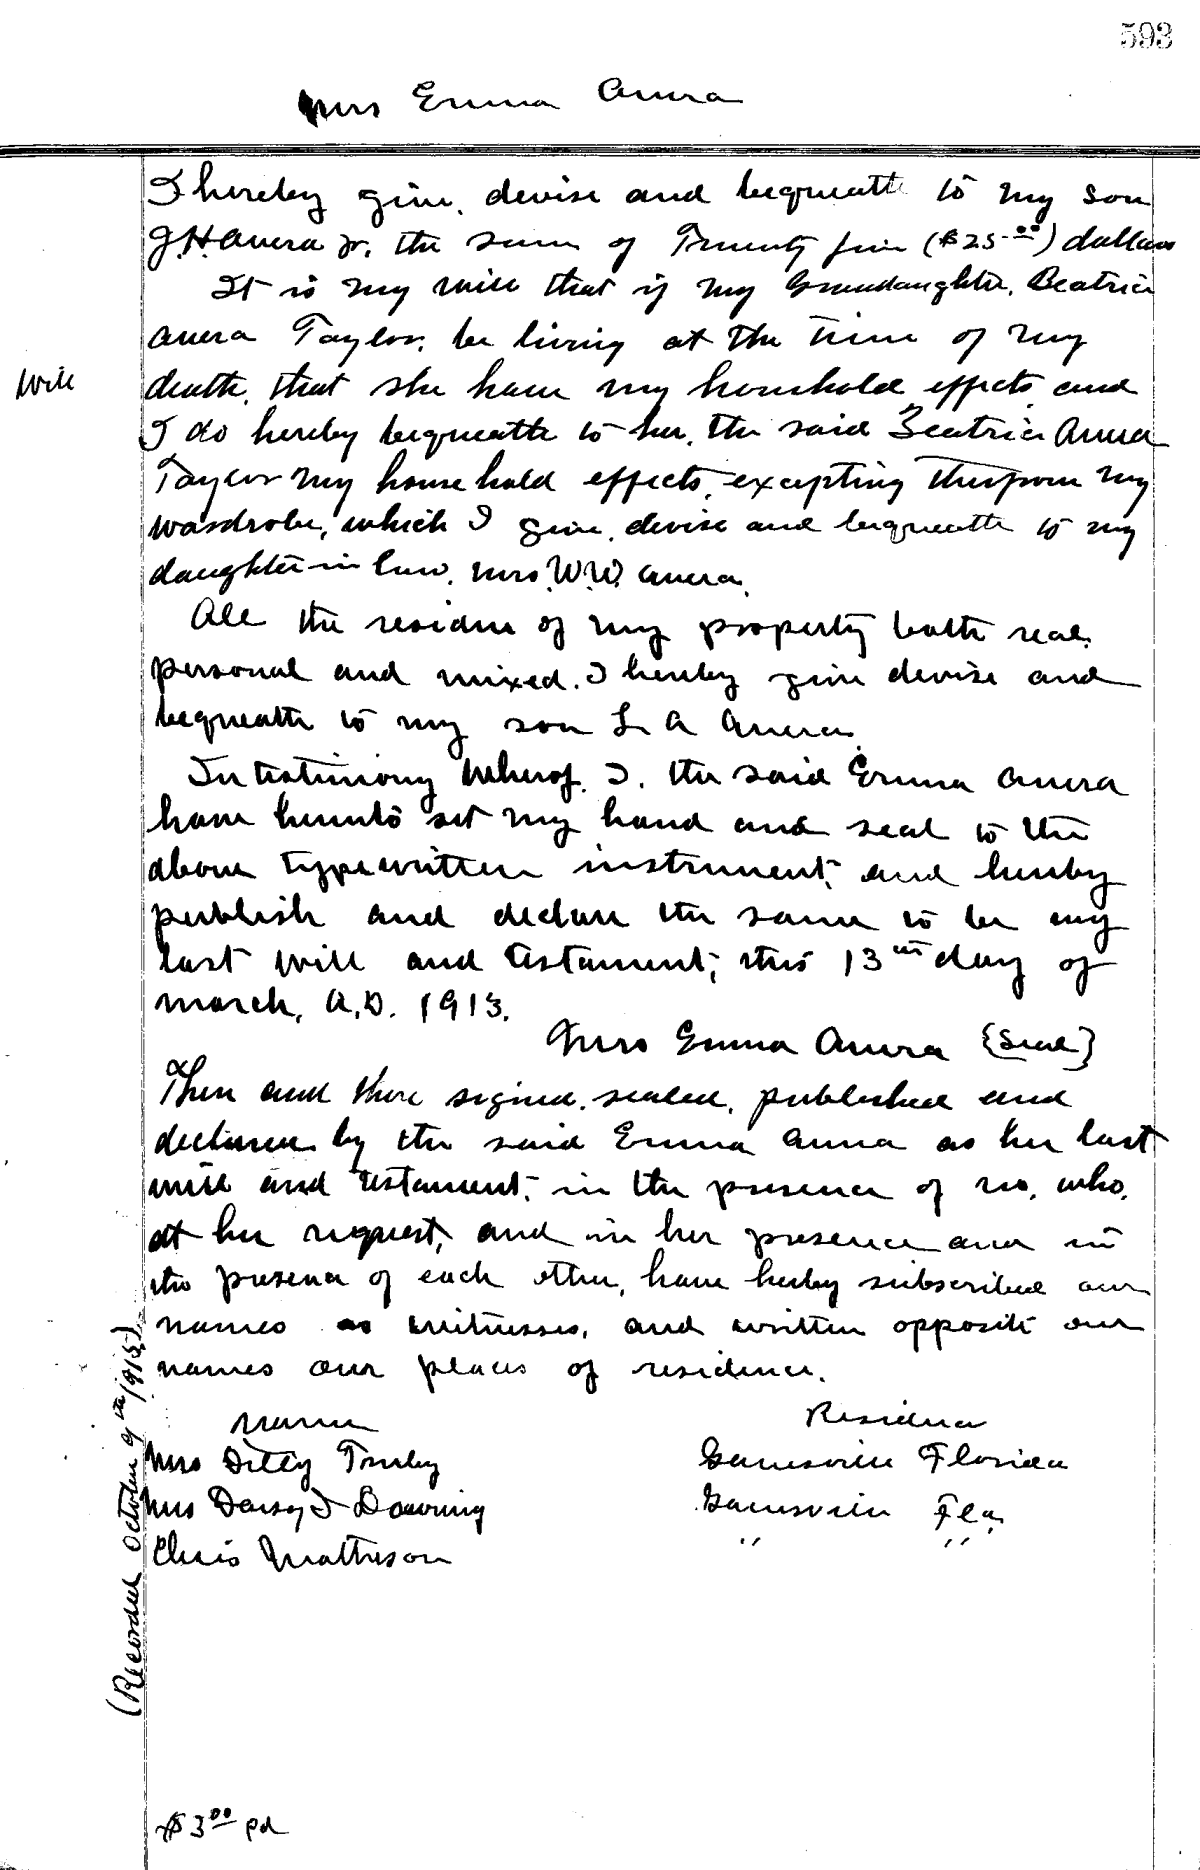 593
Mrs Emma Avera
I hereby give, devise and bequeath to my son
J.H. Avera Jr, the sum of Twenty five ($25.00) dollars
It is my will that if my Grandaughter, Beatrice
Avera Taylor, be living at the time of my
Will
death, that she have my household effects and
I do hereby bequeath to her, the said Beatrice Avera
Taylor my household effects, excepting therefrom my
wardrobe, which I give, devise and bequeath to my
daughter-in law, Mrs. W.W. Avera.
All the residue of my property both real,
personal and mixed. I hereby give devise and
bequeath to my son L A Avera.
In testimony Wherof, I, the said Emma Avera
have hereunto set my hand and seal to the
above typewritten instrument, and hereby
publish and declare the same to be my
last will and testament, this 13th day of
March, A.D. 1913.
Mrs Emma Avera {Seal}
Then and there signed, sealed, published and
declared by the said Emma Avera as her last
will and testament, in the presence of us, who,
at her request, and in her presence and in
the presence of each other, have hereby subscribed our
names as witnesses, and written opposite our
names our places of residence.
Name Residence
Mrs Daisy Downing Gainesville Florida
Gainesville Fla
Chris Matheson " "
(Recorded October 9th 1915)
$3.00 pd